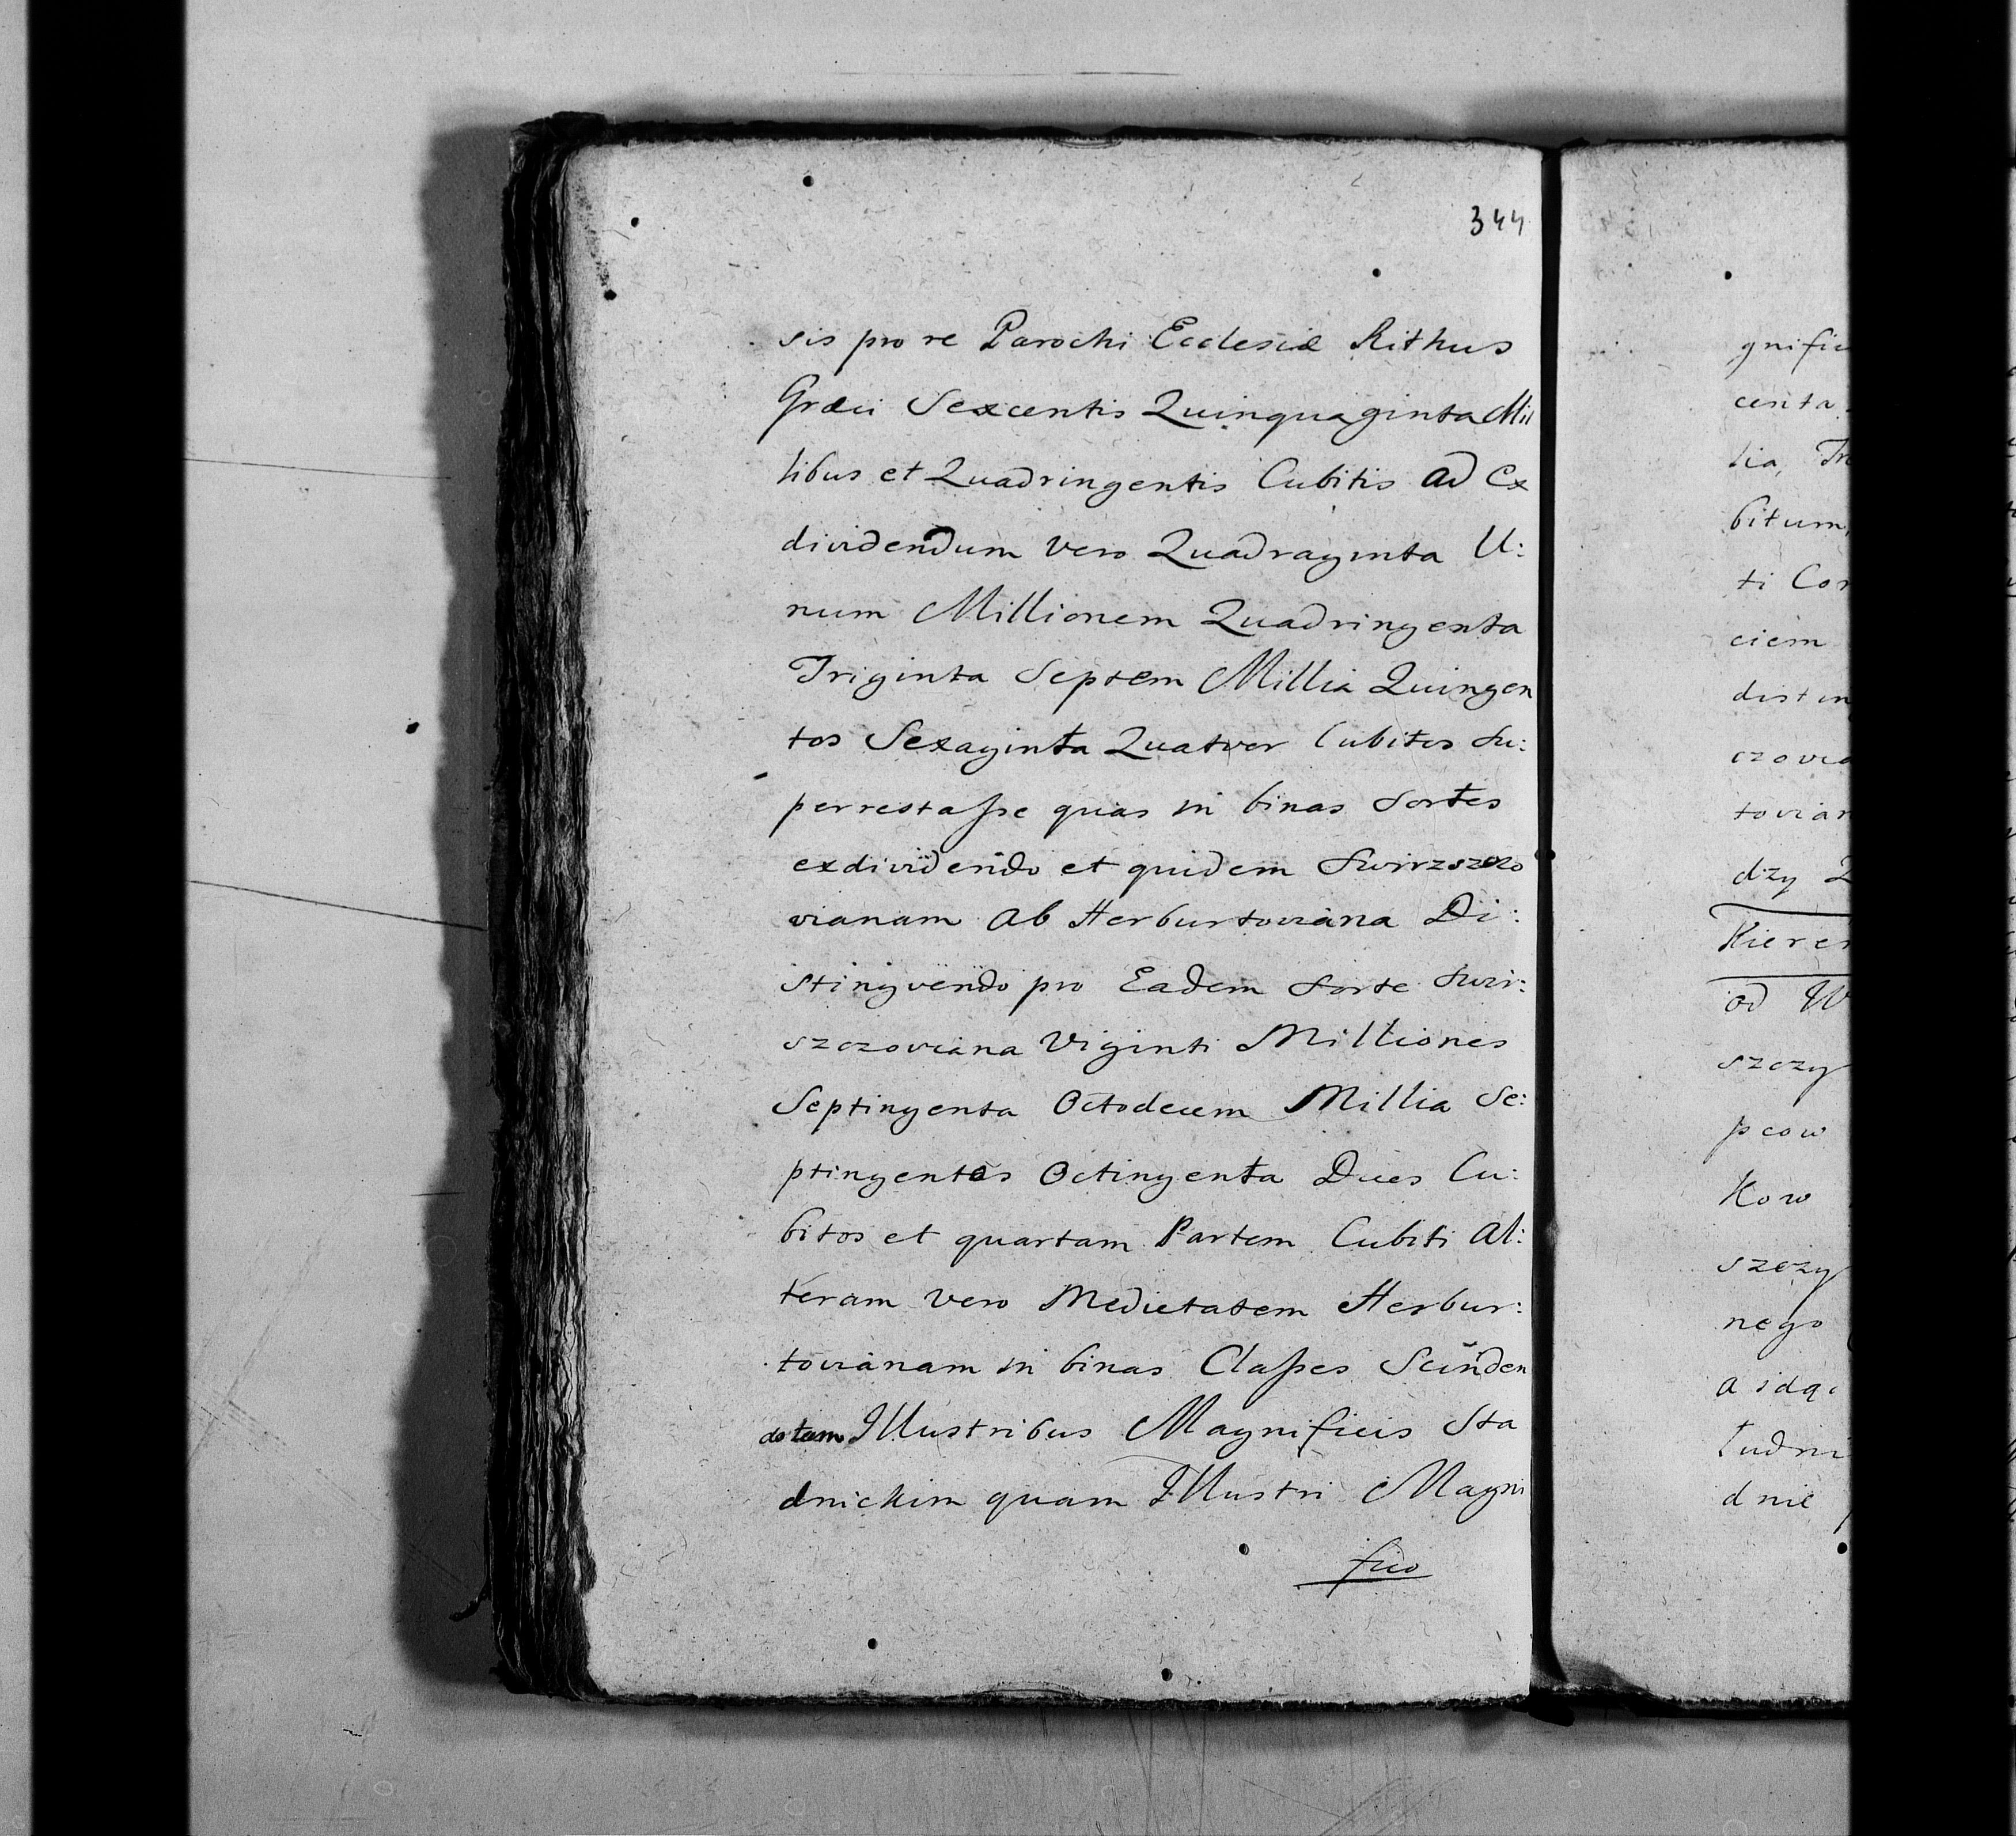 344
sis pro re Parochi Ecclesiæ Rithus
Græci Sexcentis Quinquaginta Mil
libus et Quadringentis Cubitis ad Ex
dividendum vero Quadraginta U:
num Millionem Quadringenta
Triginta Septem Millia Quingen
tos Sexaginta Quatuor Cubitos Su:
perrestasse quas in binas Sortes
exdividendo et quidem
vianam ab Herburtoviana Di:
stingvendo pro Eadem Sorte Swir:
szczoviana Viginti Milliones
Septingenta Octodecem Millia Se:
ptingentos Octingenta Dues Cu:
bitos et quartam Partem Cubiti Al:
teram vero Medietatem Herbur:
tovianam in binas Classes Scinden
do tam Illustribus Magnificis Sta
dnickim quam Illustri Magni
fico
gnific
centa
lia, Tr
bitum,
ti Cor
ciem
distin
czovia
tovian
dzy Q
Kierer
od W
szczy
pcow
Kow
szczy
nego
a idąc
ludni
dnie